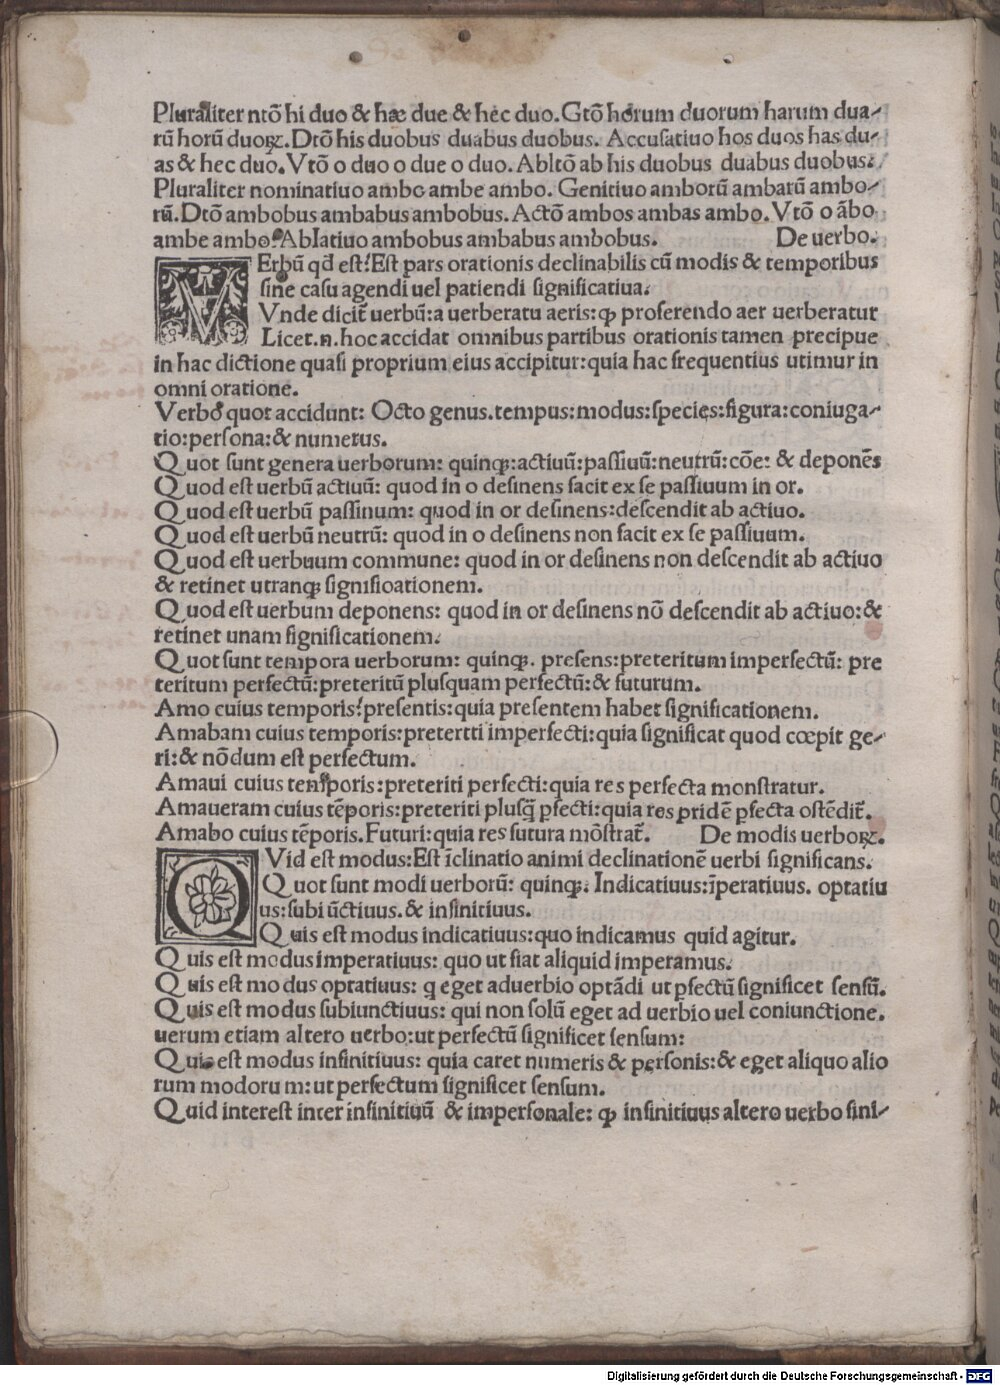 Pluraliter ntō hi duo & hæ due & hec duo. Gtō horum duorum harum dua-
rū horū duoꝝ. Dtō his duobus duabus duobus. Accusatiuo hos duos has du-
as & hec duo. Vtō o duo o due o duo. Abltō ab his duobus duabus duobus.
Pluraliter nominatiuo ambo ambe ambo. Genitiuo amborū ambarū ambo-
rū. Dtō ambobus ambabus ambobus. Actō ambos ambas ambo. Vtō o ābo
ambe ambo. Ablatiuo ambobus ambabus ambobus. De uerbo.
VErbū qd est? Est pars orationis declinabilis cū modis & temporibus
sine casu agendi uel patiendi significatiua.
Vnde dicit̄ uerbū: a uerberatu aeris: ꝙ proferendo aer uerberatur
Licet .n. hoc accidat omnibus partibus orationis tamen precipue
in hac dictione quasi proprium eius accipitur: quia hac frequentius utimur in
omni oratione.
Verbo quot accidunt: Octo genus. tempus: modus: species: figura: coniuga-
tio: persona: & numetus.
Quot sunt genera uerborum: quinqꝫ: actiuū: passiuū: neutrū: cōe: & deponēs
Quod est uerbū actiuū: quod in o desinens facit ex se passiuum in or.
Quod est uerbū passinum: quod in or desinens: descendit ab actiuo.
Quod est uerbū neutrū: quod in o desinens non facit ex se passiuum.
Quod est uerbuum commune: quod in or desinens non descendit ab actiuo
& retinet utranqꝫ signifioationem.
Quod est uerbum deponens: quod in or desinens nō descendit ab actiuo: &
retinet unam significationem.
Quot sunt tempora uerborum: quinqꝫ. presens: preteritum imperfectū: pre
teritum perfectū: preteritū plusquam perfectū: & futurum.
Amo cuius temporis? presentis: quia presentem habet significationem.
Amabam cuius temporis: pretertti imperfecti: quia significat quod cœpit ge-
ri: & nōdum est perfectum.
Amaui cuius temporis: preteriti perfecti: quia res perfecta monstratur.
Amaueram cuius tēporis: preteriti plusq̄ ꝑfecti: quia res pridē ꝑfecta ostēdit̄.
Amabo cuius tēporis. Futuri: quia res futura mōstrat̄. De modis uerboꝝ.
QVid est modus: Est īclinatio animi declinationē uerbi significans.
Quot sunt modi uerborū: quinqꝫ. Indicatiuus: īperatiuus. optatiu
us: subiūctiuus. & infinitiuus.
Quis est modus indicatiuus: quo indicamus quid agitur.
Quis est modus imperatiuus: quo ut fiat aliquid imperamus.
Quis est modus optatiuus: q eget aduerbio optādi ut ꝑfectū significet sensū.
Quis est modus subiunctiuus: qui non solū eget ad uerbio uel coniunctione.
uerum etiam altero uerbo: ut perfectū significet sensum:
Quis est modus infinitiuus: quia caret numeris & personis: & eget aliquo alio
rum modorum: ut perfectum significet sensum.
Quid interest inter infinitiuū & impersonale: ꝙ infinitiuus altero uerbo fini-
Digitalisierung gefördert durch die Deutsche Forschungsgemeinschaft - DFG